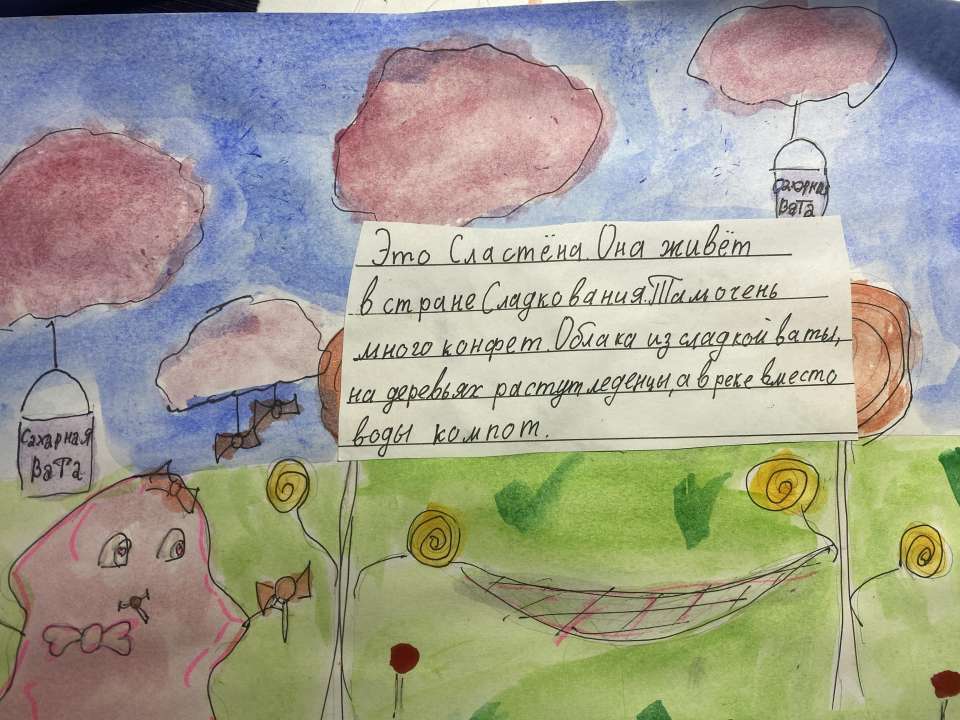 Сахарная
Вата
Это Сластёна. Она живёт
в стране Сладкования. Там очень
много конфет. Облака из сладкой ваты,
на деревьях растут леденцы, а в реке вместо
воды компот.
Сахарная
Вата